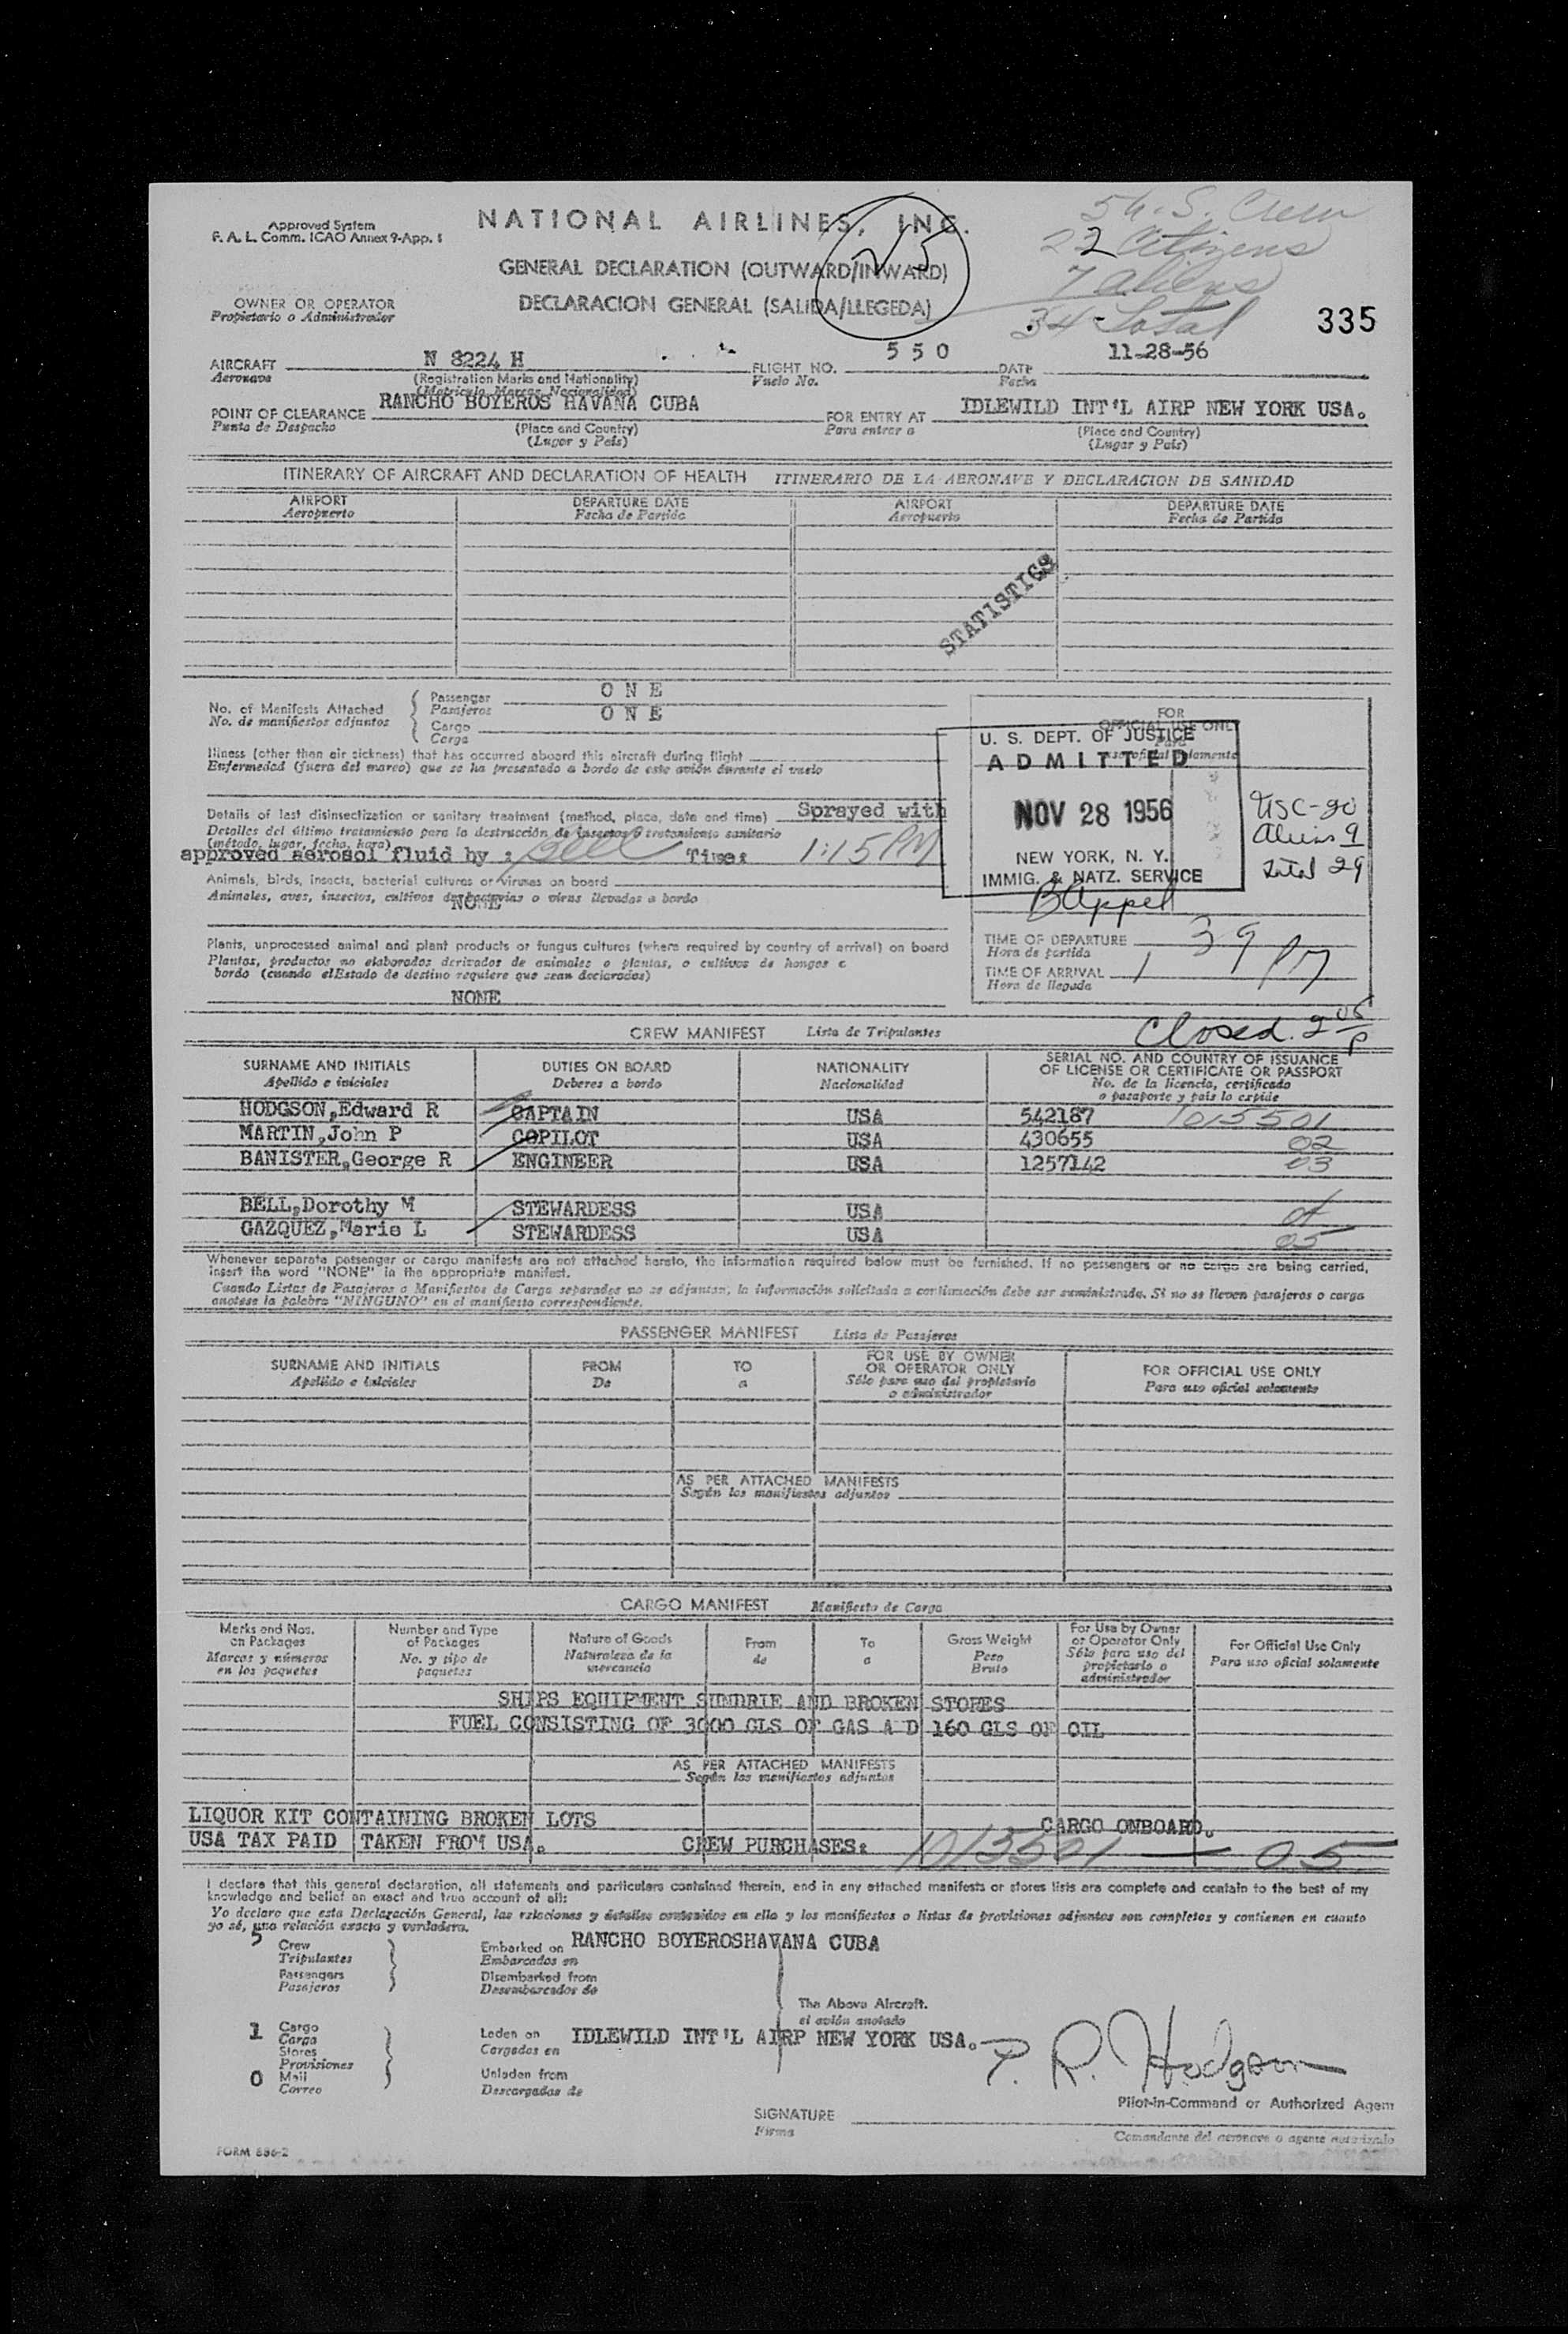 Approved System
F. A. L. Comm. ICAO Annex 9-App. 1
NATIONAL AIRLINES, INC.
GENERAL DECLARATION (OUTWARD/INWARD)
DECLARACION GENERAL (SALIDA/LLEGEDA)
25
5 U.S. Crew
22 Citizens
7 aliens
34 Total
335
OWNER OR OPERATOR
Propietario o Administrador
AIRCRAFT N 8224 H FLIGHT NO. 5 5 0 DATE 11-28-56
Aeronave (Registration Marks and Nationality) Vuelo No. Fecha
(Matricula Marcas Nacionalidad)
POINT OF CLEARANCE RANCHO BOYEROS HAVANA CUBA FOR ENTRY AT IDLEWILD INT'L AIRP NEW YORK USA.
Punto de Despacho (Place and Country) Para entrar a (Place and Country)
(Lugar y Pais) (Lugar y Pais)
ITINERARY OF AIRCRAFT AND DECLARATION OF HEALTH ITINERARIO DE LA AERONAVE Y DECLARACION DE SANIDAD
AIRPORT DEPARTURE DATE AIRPORT DEPARTURE DATE
Aeropuerto Fecha de Partida Aeropuerto Fecha de Partida
STATISTICS
No. of Manifests Attached Passenger O N E
No. de manifiestos adjuntos Pasajeros
Cargo O N E
Carga
Illness (other than air sickness) that has occurred aboard this aircraft during flight
Enfermedad (fuera del mareo) que se ha presentado a bordo de este avión durante el vuelo
Details of last disinsectization or sanitary treatment (method, place, date and time) Sprayed with
Detalles del último tratamiento para la destrucción de insectos o tratamiento sanitario
(método, lugar, fecha, hora)
approved aerosol fluid by : Bell Time: 1:15 PM
Animals, birds, insects, bacterial cultures or viruses on board
Animales, aves, insectos, cultivos de bacterias o virus llevados a bordo
NONE
Plants, unprocessed animal and plant products or fungus cultures (where required by country of arrival) on board
Plantas, productos no elaborados derivados de animales o plantas, o cultivos de hongos a
bordo (cuando el Estado de destino requiere que sean declarados)
NONE
FOR
OFFICIAL USE ONLY
Para
uso oficial solamente
U. S. DEPT. OF JUSTICE
ADMITTED
NOV 28 1956
NEW YORK, N. Y.
IMMIG. & NATZ. SERVICE
USC-20
Aliens 9
Total 29
B Appel
TIME OF DEPARTURE
Hora de partida
TIME OF ARRIVAL 1 39 PM
Hora de llegada
Closed. 2 05 P
CREW MANIFEST Lista de Tripulantes
SURNAME AND INITIALS DUTIES ON BOARD NATIONALITY SERIAL NO. AND COUNTRY OF ISSUANCE
OF LICENSE OR CERTIFICATE OR PASSPORT
Apellido e iniciales Deberes a bordo Nacionalidad No. de la licencia, certificado
o pasaporte y pais lo expide
HODGSON,Edward R CAPTAIN USA 542187 1015501
MARTIN,John P COPILOT USA 430655 02
BANISTER,George R ENGINEER USA 1257142 03
BELL,Dorothy M STEWARDESS USA
GAZQUEZ,Maria L STEWARDESS USA 05
Whenever separate passenger or cargo manifests are not attached hereto, the information required below must be furnished. If no passengers or no cargo are being carried,
insert the word "NONE" in the appropriate manifest.
Cuando Listas de Pasajeros o Manifiestos de Carga separados no se adjuntan, la información solicitada a continuación debe ser suministrada. Si no se lleven pasajeros o carga
anotese la palabra "NINGUNO" en el manifiesto correspondiente.
PASSENGER MANIFEST Lista de Pasajeros
SURNAME AND INITIALS FROM TO FOR USE BY OWNER
OR OPERATOR ONLY FOR OFFICIAL USE ONLY
Apellido e iniciales De a Sólo para uso del propietario
o administrador Para uso oficial solamente
AS PER ATTACHED MANIFESTS
Según los manifiestos adjuntos
CARGO MANIFEST Manifiesto de Carga
Marks and Nos.
on Packages
Marcas y números
en los paquetes
Number and Type
of Packages
No. y tipo de
paquetes
Nature of Goods
Naturaleza de la
mercancia
From
de
To
a
Gross Weight
Peso
Bruto
For Use by Owner
or Operator Only
Sólo para uso del
propietario o
administrador
For Official Use Only
Para uso oficial solamente
SHIPS EQUIPMENT SUNDRIE AND BROKEN STORES
FUEL CONSISTING OF 3000 GLS OF GAS A D 160 GLS OF OIL
AS PER ATTACHED MANIFESTS
Según los manifiestos adjuntos
LIQUOR KIT CONTAINING BROKEN LOTS CARGO ONBOARD.
USA TAX PAID TAKEN FROM USA. CREW PURCHASES: 1013501 — 05
I declare that this general declaration, all statements and particulars contained therein, and in any attached manifests or stores lists are complete and contain to the best of my
knowledge and belief an exact and true account of all:
Yo declaro que esta Declaración General, las relaciones y detalles contenidos en ella y los manifiestos o listas de provisiones adjuntos son completos y contienen en cuanto
yo sé, una relación exacta y verdadera.
5 Crew Embarked on RANCHO BOYEROSHAVANA CUBA
Tripulantes Embarcados en
Passengers Disembarked from
Pasajeros Desembarcados de
The Above Aircraft.
el avión anotado
1 Cargo Laden on IDLEWILD INT'L AIRP NEW YORK USA.
Carga Cargados en
Stores
Provisiones
0 Mail Unladen from
Correo Descargados de
E. R. Hodgson
Pilot-in-Command or Authorized Agent
SIGNATURE
Firma
Comandante del aeronave o agente autorizado
FORM 886-2